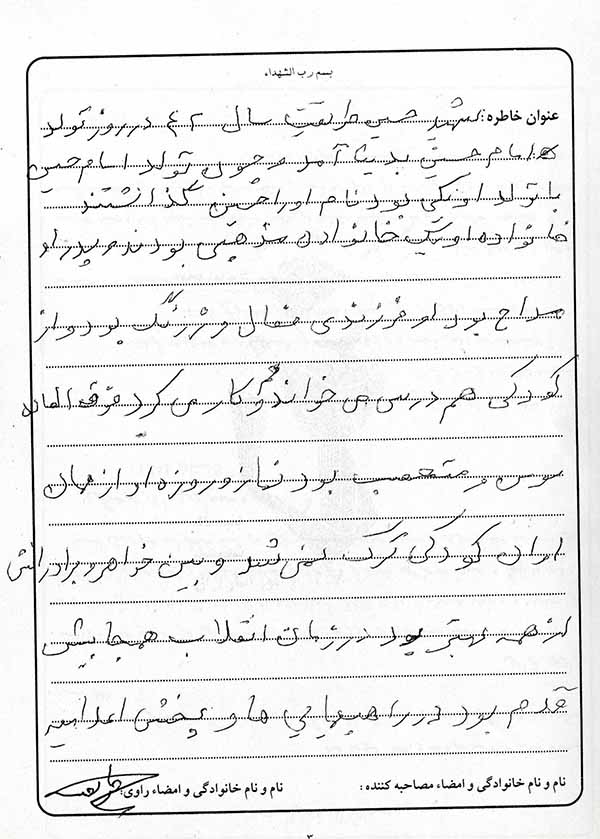 بسم رب الشهداء
عنوان خاطره: شهید حسین طریقت سال ۴۲ در روز تولد
امام حسین بدنیا آمد و چون تولد امام حسین
با تولد او یکی بود نام او را حسین گذاشتند
خانواده او یک خانواده مذهبی بودند و پدر او
مداح بود او فرزندی فعال و زرنگ بود و از
کودکی هم درس می خواند و هم کار می کرد فوق العاده
مومن و متعصب بود نماز و روزه او از همان
دوران کودکی ترک نمی شد و بین خواهر و برادرانش
از همه بهتر بود در زمان انقلاب همجا پیش
قدم بود در راهپیمایی ها و پخش اعلامیه
نام و نام خانوادگی و امضاء مصاحبه کننده :
نام و نام خانوادگی و امضاء راوی:
۳